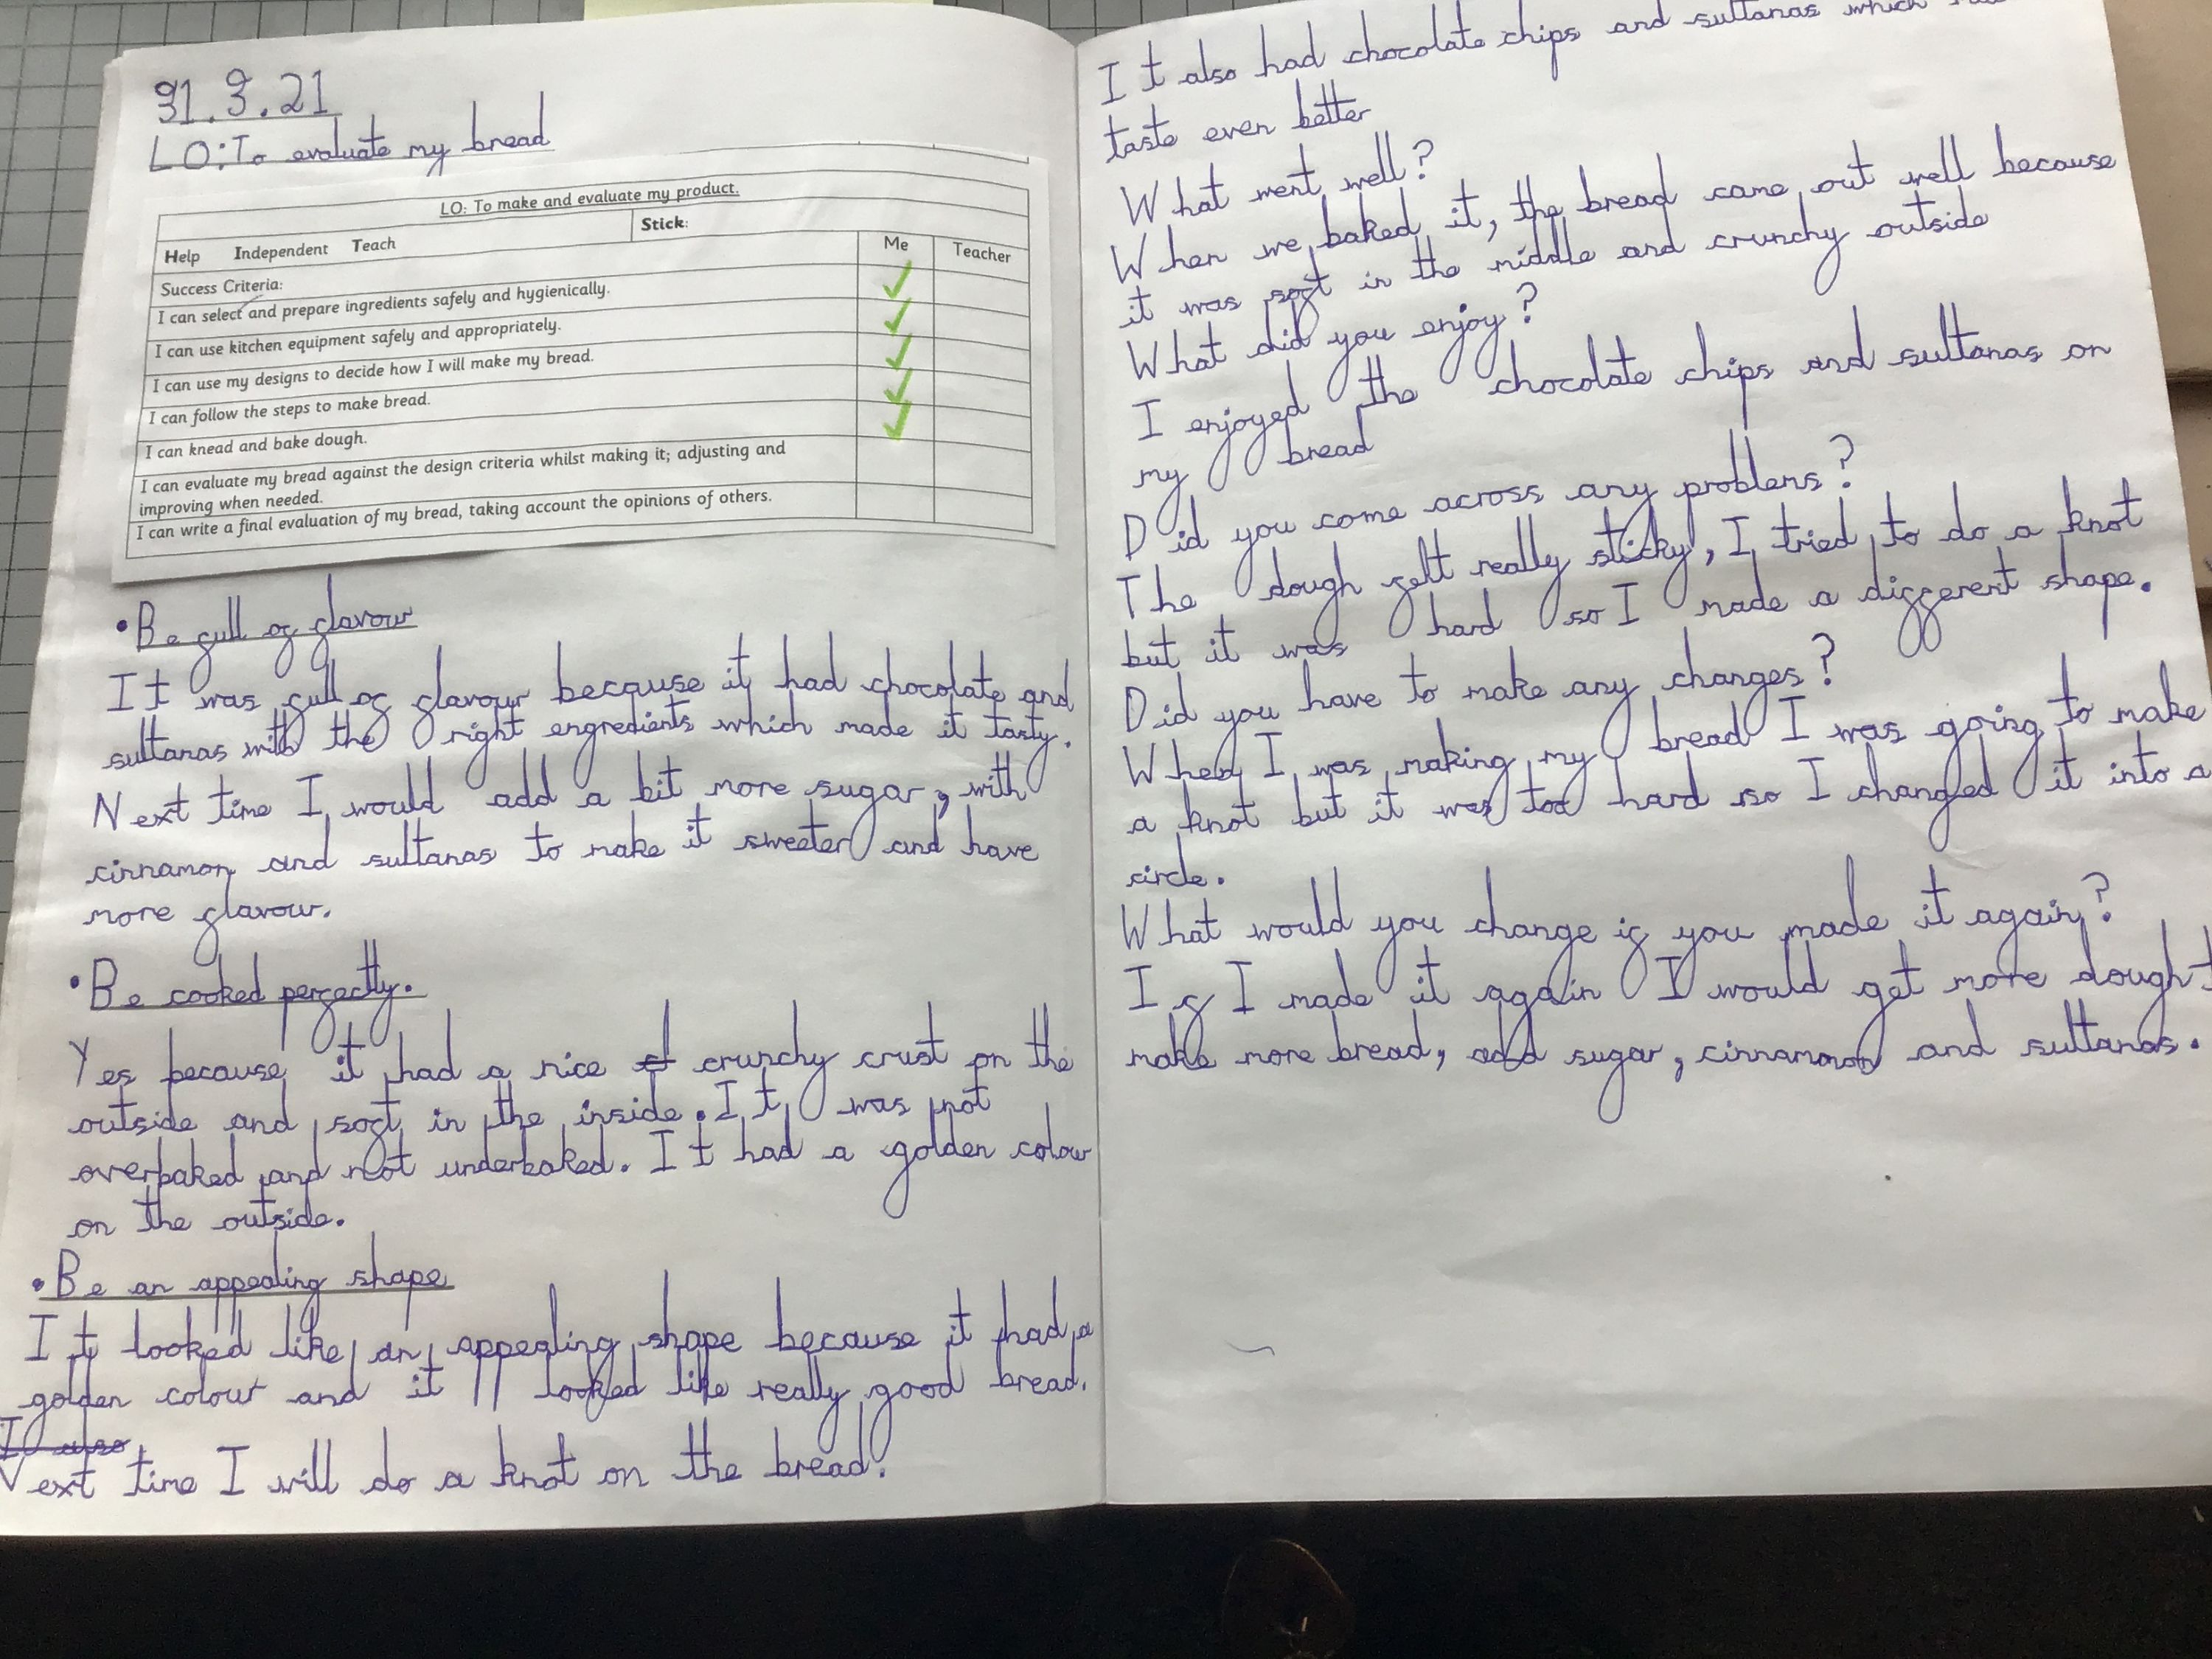 31.3.21
LO: To evaluate my bread
LO: To make and evaluate my product.
Help Independent Teach Stick:
Success Criteria: Me Teacher
I can select and prepare ingredients safely and hygienically.
I can use kitchen equipment safely and appropriately.
I can use my designs to decide how I will make my bread.
I can follow the steps to make bread.
I can knead and bake dough.
I can evaluate my bread against the design criteria whilst making it; adjusting and
improving when needed.
I can write a final evaluation of my bread, taking account the opinions of others.
• Be full of flavour
It was full of flavour because it had chocolate and
sultanas with the right engredients which made it tasty.
Next time I would add a bit more sugar, with
cinnamon and sultanas to make it sweeter and have
more flavour.
• Be cooked perfectly.
Yes because it had a nice crunchy crust on the
outside and soft in the inside. It was not
overbaked and not underbaked. It had a golden colour
on the outside.
• Be an appealing shape
It looked like an appealing shape because it had a
golden colour and it looked like really good bread.
I also
Next time I will do a knot on the bread.
It also had chocolate chips and sultanas which
taste even better
What went well?
When we baked it, the bread came out well because
it was soft in the middle and crunchy outside
What did you enjoy?
I enjoyed the chocolate chips and sultanas on
my bread
Did you come across any problems?
The dough felt really sticky, I tried to do a knot
but it was hard so I made a different shape.
Did you have to make any changes?
When I was making my bread I was going to make
a knot but it was too hard so I changed it into a
circle.
What would you change if you made it again?
If I made it again I would get more dough
make more bread, add sugar, cinnamon and sultanas.